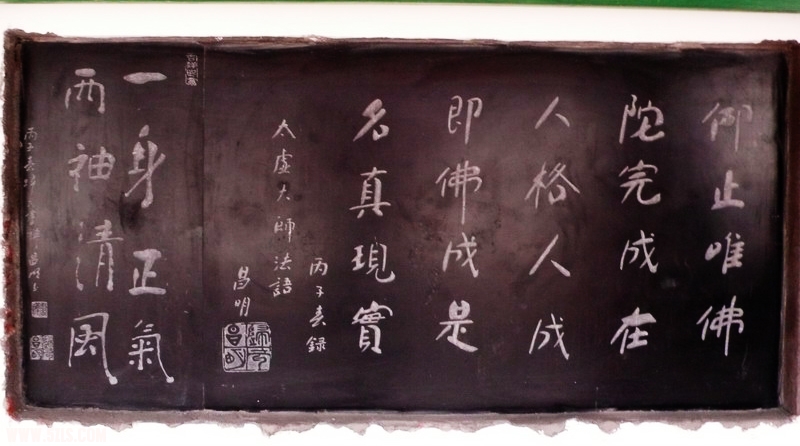 仰止唯佛
陀完成在
人格人成
即佛成是
名真現實
丙子春錄
太虛大師法語
昌明
一身正氣
兩袖清風
丙子春